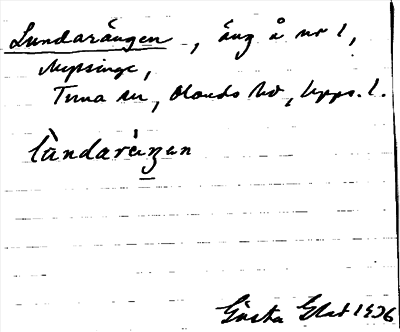 Lundarängen, äng å nr 1,
Nepsinge,
Tuna sn, Olands hd, Upps. l.
lùndaräŋen
Gösta Elst 1936